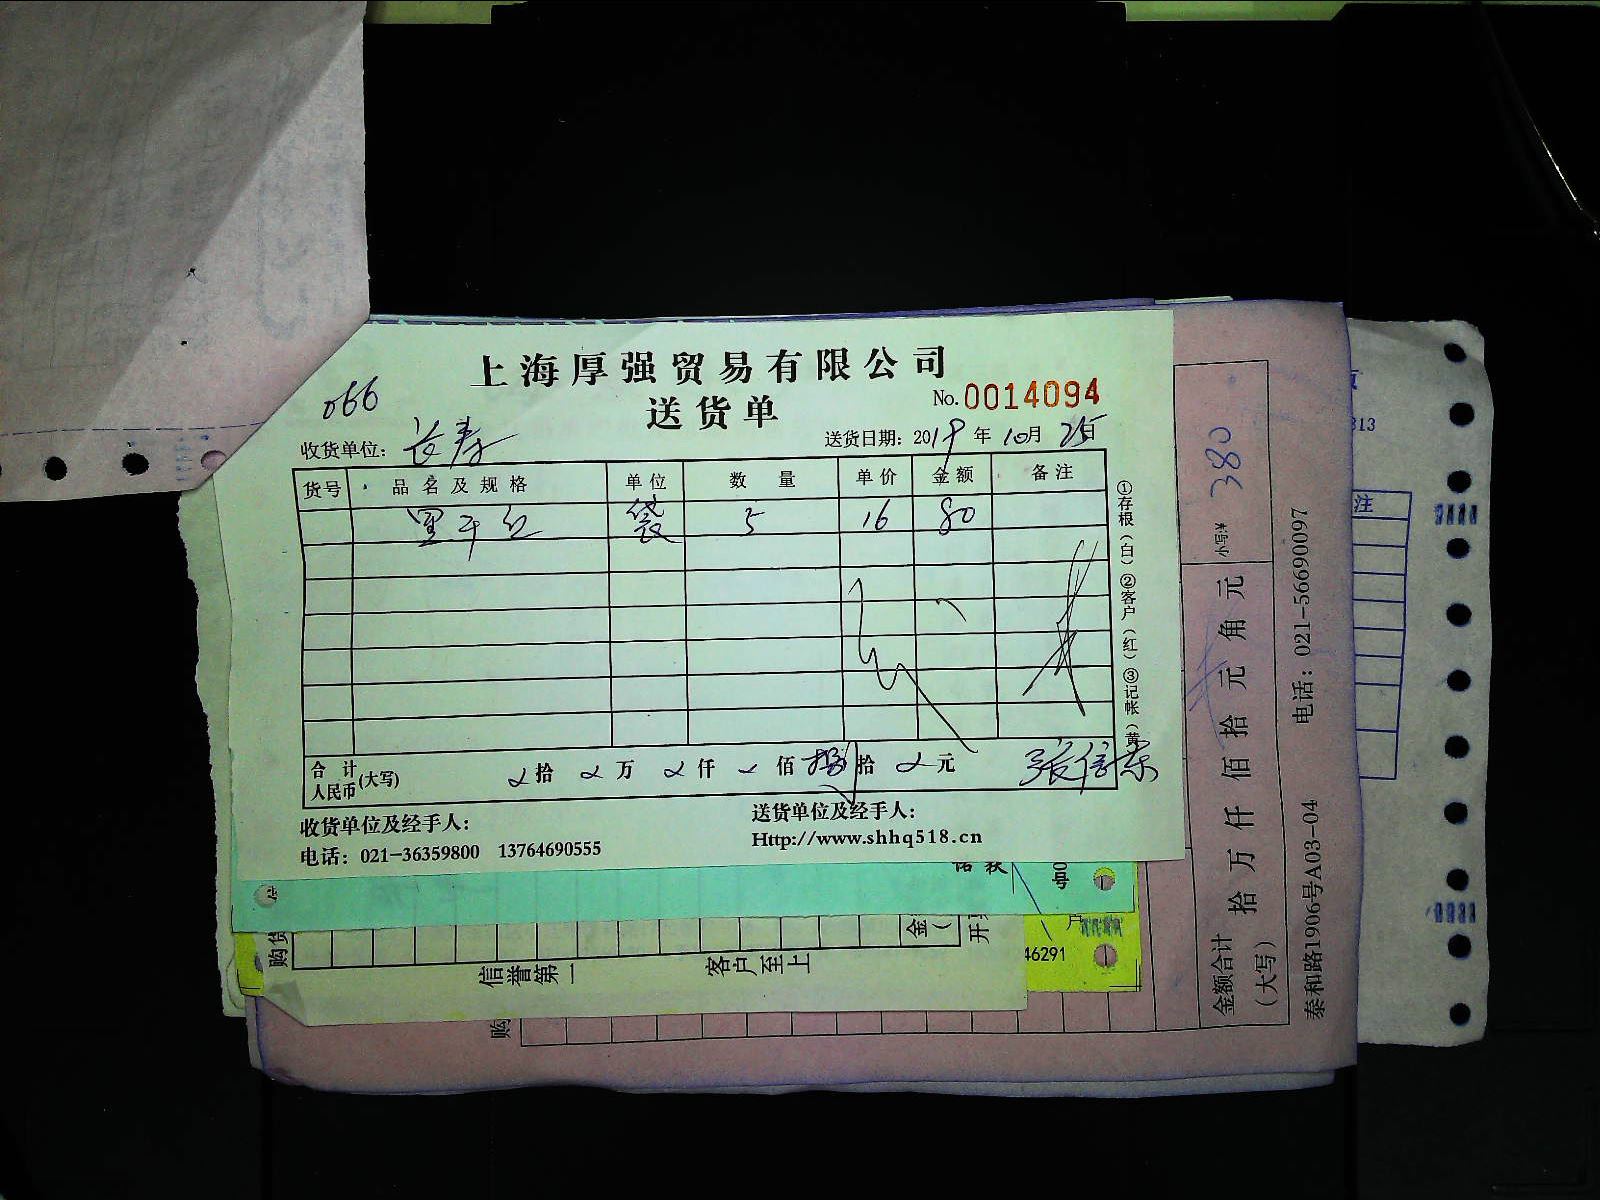 上海厚强贸易有限公司
066
No.0014094
送货单
收货单位：长寿
送货日期：2019年10月25日
货号 品名及规格 单位 数量 单价 金额 备注
袋 5 16 80
①存根（白）②客户（红）③记帐（黄
合计人民币(大写) 拾 万 仟 佰 捌拾 元
收货单位及经手人：
送货单位及经手人：
电话：021-36359800 13764690555
Http://www.shhq518.cn
小写:¥ 380
金额合计（大写） 拾 万 仟 佰 拾 元 角 元
泰和路1906号A03-04 电话：021-56690097
313
注
购货
信誉第一 客户至上
金
开
号
户
46291
购